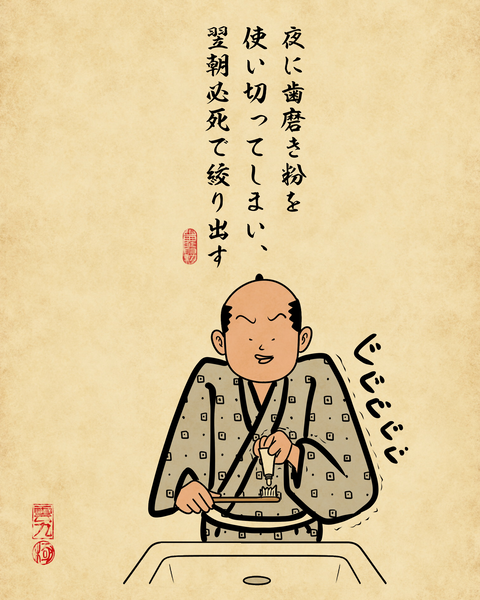 夜に歯磨き粉を
使い切ってしまい、
翌朝必死で絞り出す